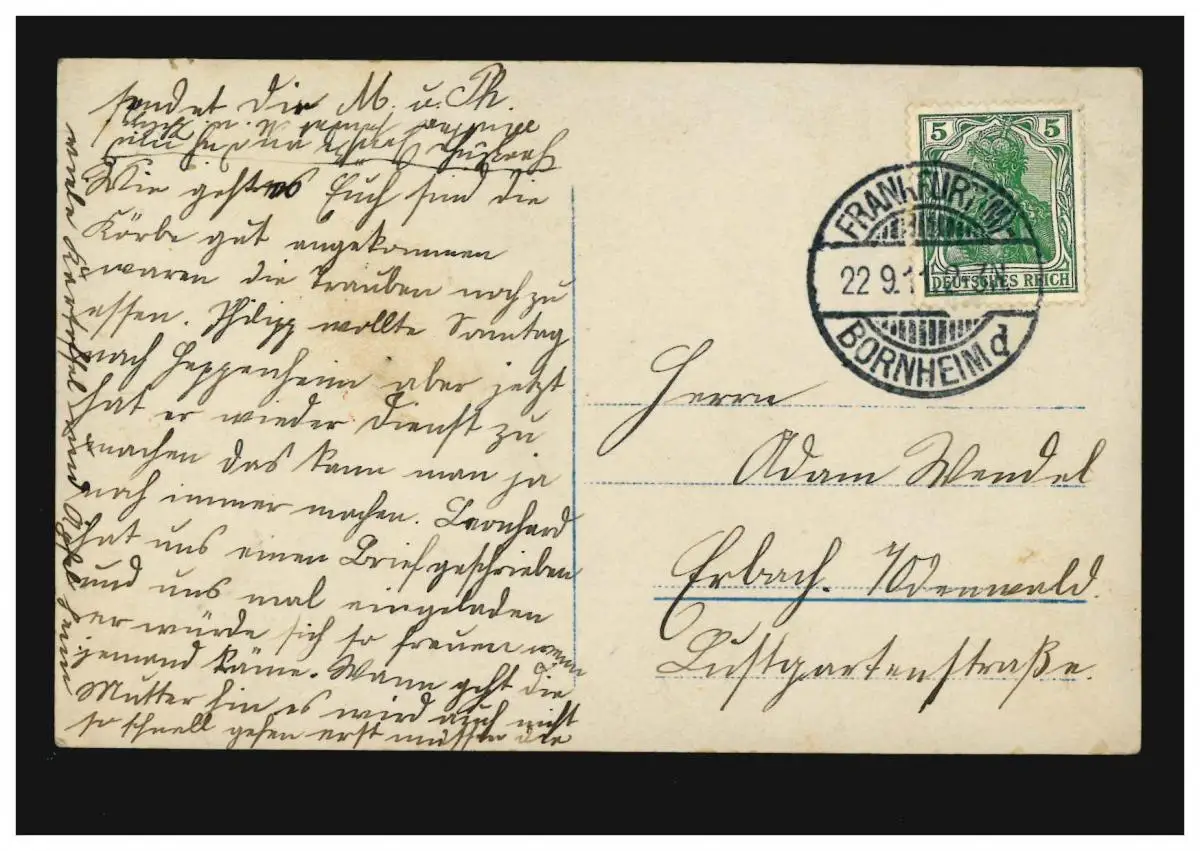 sendet die M. u. Th.
Wie geht es Euch sind die
Körbe gut angekommen
waren die Trauben noch zu
essen. Philipp wollte Sonntag
nach Heppenheim aber jetzt
hat er wieder Dienst zu
machen das kann man ja
noch immer machen. Leonhard
hat uns einen Brief geschrieben
und uns mal eingeladen
er würde sich so freuen wenn
jemand käme. Wann geht die
Mutter hin es wird auch nicht
so schnell gehen erst müssen die
Kartoffel und Äpfel heim
5 5
DEUTSCHES REICH
FRANKFURT (M)
22 9.11
BORNHEIM d
Herrn
Adam Wendel
Erbach. i/Odenwald.
Lustgartenstraße.